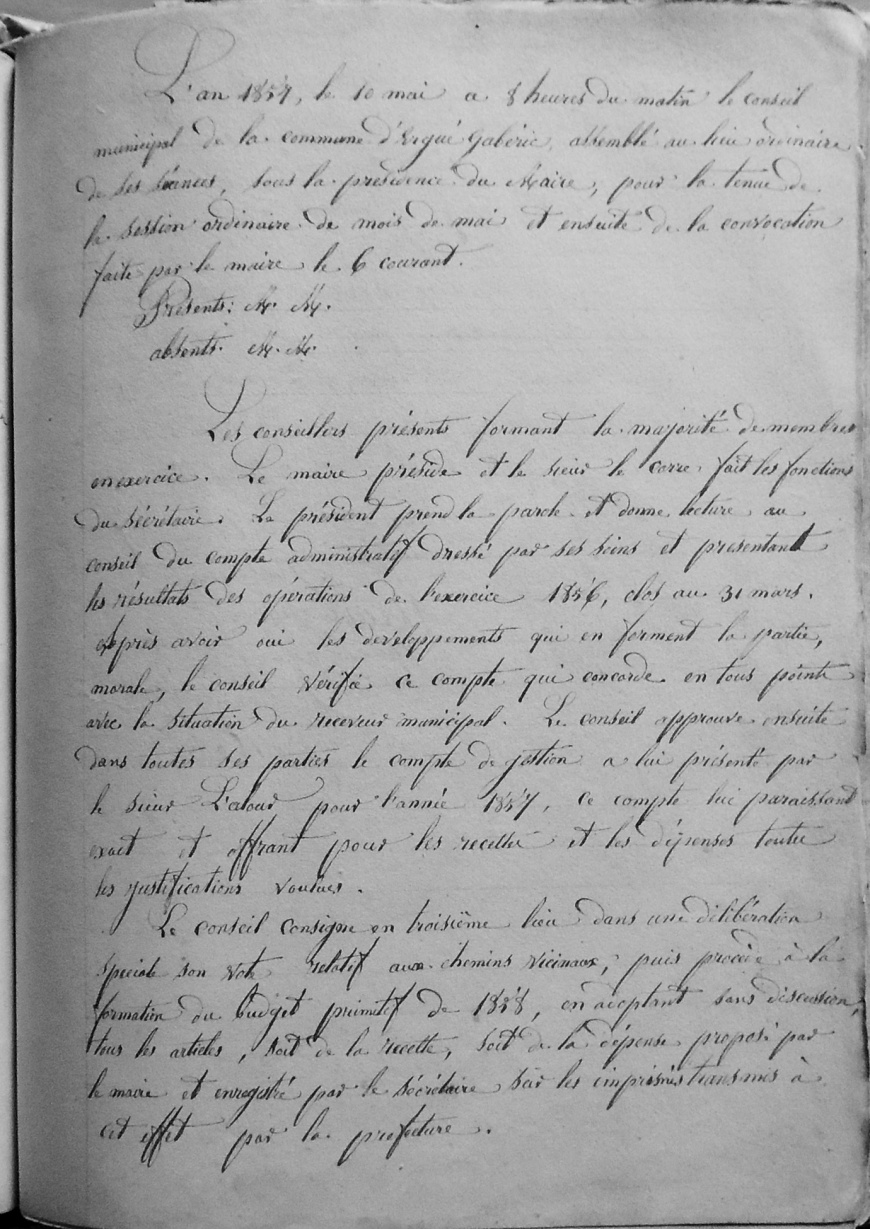 L'an 1857, le 10 mai a 8 heures du matin le conseil
municipal de la commune d'Ergué Gabéric, assemblé au lieu ordinaire
de ses séances, sous la présidence du Maire, pour la tenue de
la session ordinaire de mois de mai et ensuite de la convocation
faite par le maire le 6 courant.
Présents: M. M.
absents M. M.
Les conseillers présents formant la majorité de membres
en exercice. Le maire préside et le sieur le corre fait les fonctions
du sécrétaire. Le président prend la parole et donne lecture au
conseil du compte administratif dressé par ses soins et presentant
les résultats des opérations de l'exercice 1856, clos au 31 mars.
après avoir oui les developpements qui en forment la partie,
morale, le conseil vérifie ce compte qui concorde en tous points
avec la situation du receveur municipal. Le conseil approuve ensuite
dans toutes ses parties le compte de gestion a lui présenté par
le sieur Latour pour l'année 1857, ce compte lui paraissant
exact et offrant pour les recettes et les dépenses toutes
les justifications voulues.
Le conseil consigne en troisième lieu dans une délibération
speciale son vote relatif aux chemins vicinaux, puis procède à la
formation du budget primitif de 1858, en adoptant sans discussion,
tous les articles, soit de la recette, soit de la dépense proposé par
le maire et enregistré par le sécrétaire sur les imprimés transmis à
cet effet par la prefecture.